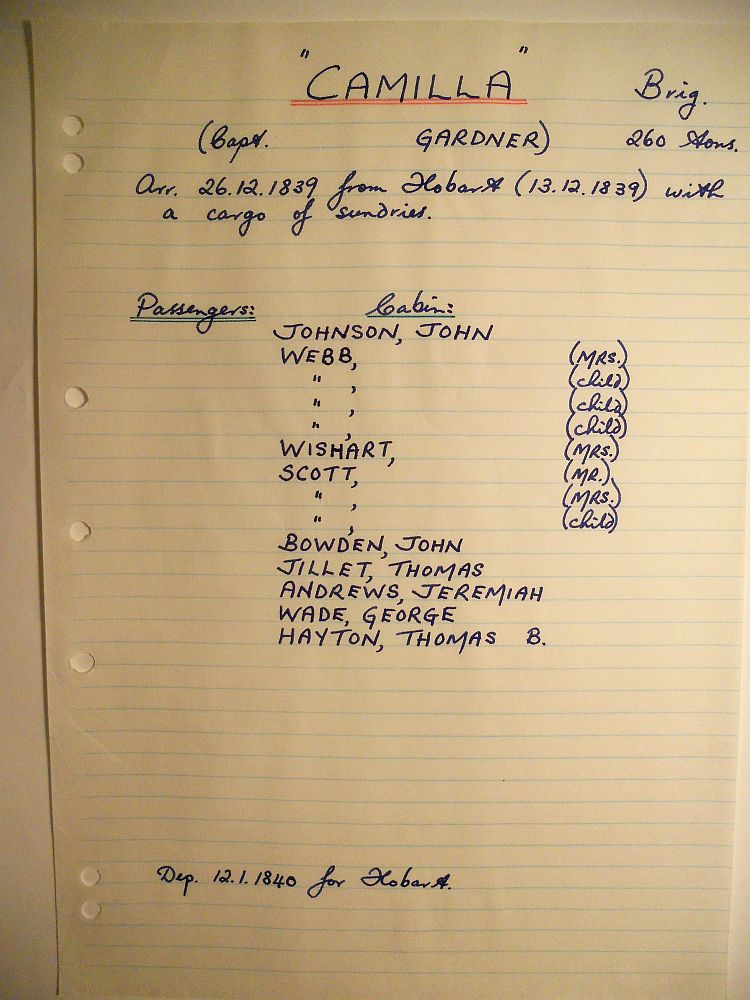 "CAMILLA" Brig.
(Capt. GARDNER) 260 tons.
Arr. 26.12.1839 from Hobart (13.12.1839) with
a cargo of sundries.
Passengers: Cabin:
JOHNSON, JOHN
WEBB, (MRS.)
" , (child)
" , (child)
" , (child)
WISHART, (MRS.)
SCOTT, (MR.)
" , (MRS.)
" , (child)
BOWDEN, JOHN
JILLET, THOMAS
ANDREWS, JEREMIAH
WADE, GEORGE
HAYTON, THOMAS B.
Dep. 12.1.1840 for Hobart.